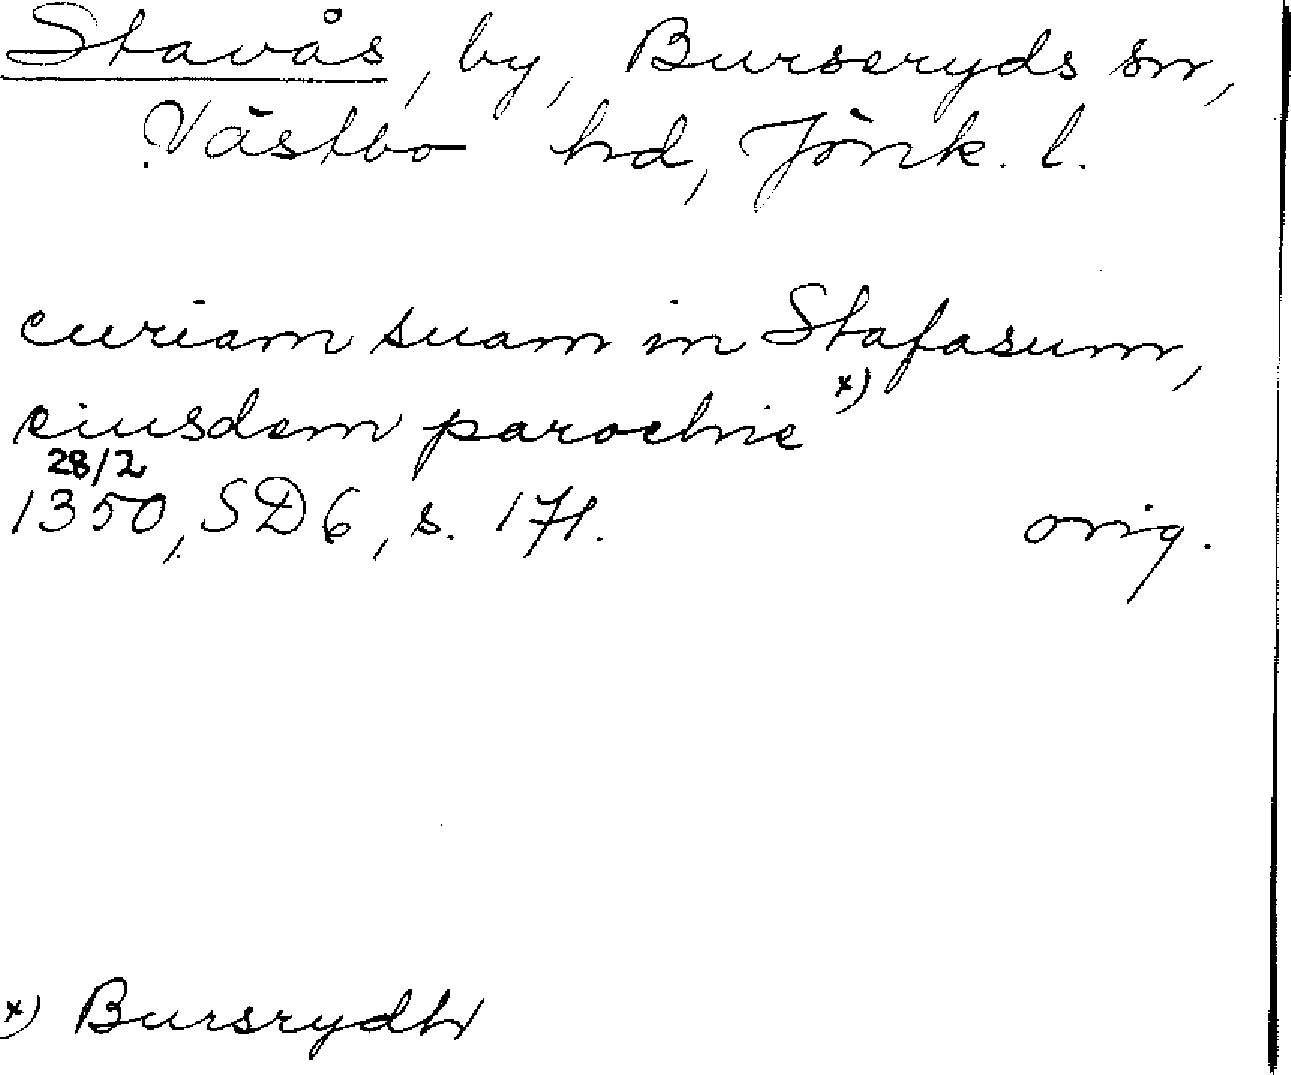 Stavås, by, Burseryds sn,
Västbo hd, Jönk. l.
curiam suam in Stafasum,
eiusdem parochie x)
28/2
1350, SD 6, s. 171. orig.
x) Bursrydh